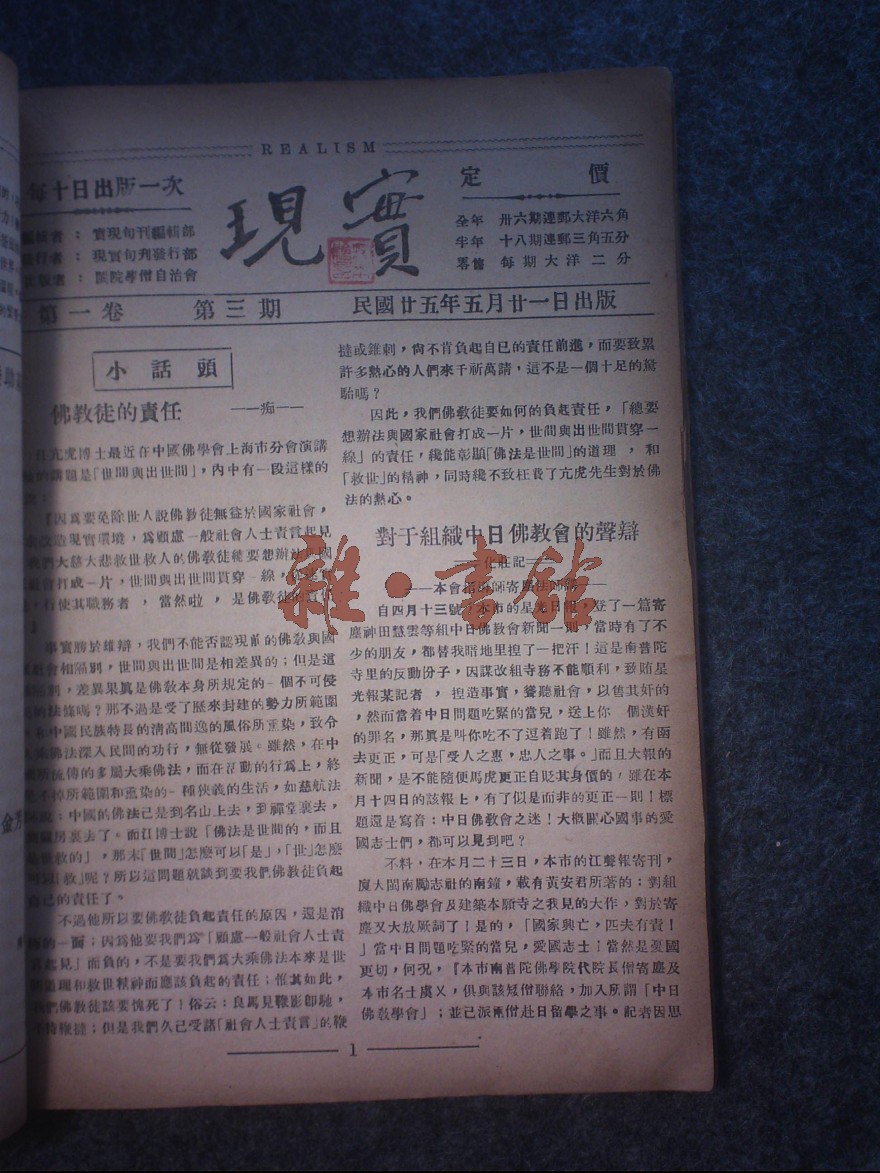 REALISM
每十日出版一次
現實
定價
全年 卅六期連郵大洋六角
半年 十八期連郵三角五分
零售 每期大洋二分
者：實現旬刊編輯部
行者：現實旬刊發行部
版者：閩院學僧自治會
第一卷 第三期 民國廿五年五月廿一日出版
小話頭
佛教徒的責任 ——痴——
亢虎博士最近在中國佛學會上海市分會演講
題是「世間與出世間」，內中有一段這樣的
『因爲要免除世人說佛教徒無益於國家社會，
改造現實環境，爲顧慮一般社會人士責言起見
我們大慈大悲救世救人的佛教徒總要想辦法與國
社會打成一片，世間與出世間貫穿一線，
，行使其職務者，當然啦，是佛教徒的責任
事實勝於雄辯，我們不能否認現前的佛教與國
社會相隔別，世間與出世間是相差異的；但是這
別，差異果眞是佛教本身所規定的一個不可侵
的法條嗎？那不過是受了歷來封建的勢力所範圍
中國民族特長的清高閒逸的風俗所熏染，致令
佛法深入民間的功行，無從發展。雖然，在中
所流傳的多屬大乘佛法，而在活動的行爲上，終
不掉所範圍和熏染的一種狹義的生活，如慈航法
說：中國的佛法己是到名山上去，到禪堂裏去，
房裏去了。而江博士說「佛法是世間的，而且
救的」，那末「世間」怎麽可以「是」，「世」怎麽
「救」呢？所以這問題就談到要我們佛教徒負起
自己的責任了。
不過他所以要佛教徒負起責任的原因，還是消
的一面；因爲他要我們爲「顧慮一般社會人士責
起見」而負的，不是要我們爲大乘佛法本來是世
道理和救世精神而應該負起的責任；惟其如此，
我們佛教徒該要愧死了！俗云：良馬見鞭影卽馳，
不待鞭撻；但是我們久己受諸「社會人士責言」的鞭
撻或錐刺，尙不肯負起自已的責任前進，而要致累
許多熱心的人們來千祈萬請，這不是一個十足的駑
駘嗎？
因此，我們佛教徒要如何的負起責任，「總要
想辦法與國家社會打成一片，世間與出世間貫穿一
線」的責任，纔能彰顯「佛法是世間」的道理，和
「救世」的精神，同時纔不致枉費了亢虎先生對於佛
法的熱心。
對于組織中日佛教會的聲辯
——化莊記——
自四月十三號，本市的星光日報，登了一篇寄
塵神田慧雲等組中日佛教會新聞一則，當時有了不
少的朋友，都替我暗地里揑了一把汗！這是南普陀
寺里的反動份子，因謀改組寺務不能順利，致賄星
光報某記者，揑造事實，聳聽社會，以售其奸的
，然而當着中日問題吃緊的當兒，送上你 個漢奸
的罪名，那眞是叫你吃不了逗着跑了！雖然，有函
去更正，可是「受人之惠，忠人之事。」而且大報的
新聞，是不能隨便馬虎更正自貶其身價的，雖在本
月十四日的該報上，有了似是而非的更正一則！標
題還是寫着：中日佛教會之迷！大槪關心國事的愛
國志士們，都可以見到吧？
不料，在本月二十三日，本市的江聲報寄刊，
廈大閩南勵志社的南鐘，載有黃安君所著的：對組
織中日佛學會及建築本願寺之我見的大作，對於寄
塵又大放厥詞了！是的，「國家興亡，匹夫有責！
」當中日問題吃緊的當兒，愛國志士！當然是憂國
更切，何況，『本市南普陀佛學院代院長僧寄塵及
本市名士虞乂，俱與該矮僧聯絡，加入所謂「中日
佛教學會」；並已派兩僧赴日留學之事。記者因思
1
雜·書館